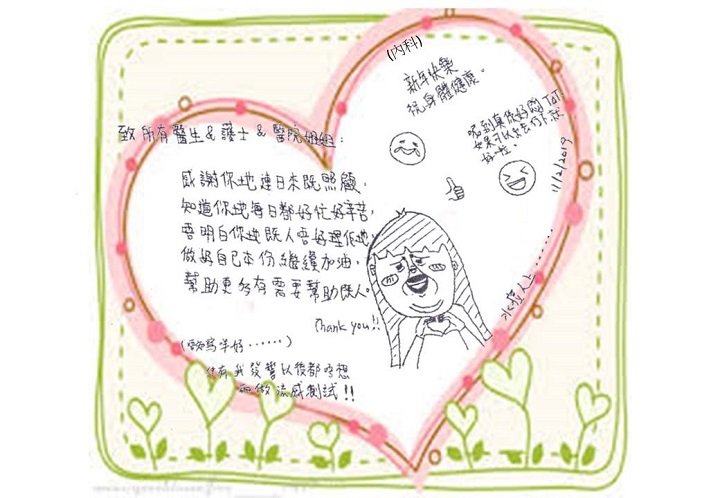 (內科)
新年快樂
祝身體健康。
TAT
如果可以
好啦。
11/2/2019
致 所有醫生 & 護士 & 醫院姐姐：
感謝你地連日來既照顧，
知道你地每日都好忙好辛苦，
唔明白你地既人唔好理佢地，
做好自己本份繼續加油，
幫助更多有需要幫助既人。
Thank you!!
人上……
寫乎好……)
我發誓以後都唔想
再做流感測試!!